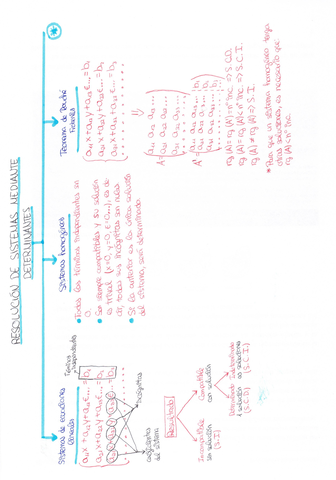 RESOLUCIÓN DE SISTEMAS MEDIANTE
DETERMINANTES
Sistemas de ecuaciones
lineales
Términos
independientes
a₁₁x + a₁₂y + a₁₃z... = b₁
a₂₁x + a₂₂y + a₂₃z... = b₂
a₃₁x + a₃₂y + a₃₃z... = b₃
Coeficientes
del sistema
Incógnitas
Resultado
Incompatible
sin solución
(S.I.)
Compatible
con solución
Determinado
1 solución
(S.C.D)
Indeterminado
∞ soluciones
(S.C.I.)
Sistemas homogéneos
• Todos los términos independientes son
0.
• Son siempre compatibles y su solución
es trivial (x=0, y=0, z=0...), es de-
cir, todas sus incógnitas son nulas
• Si la anterior es la única solución
del sistema, será determinado
Teorema de Rouché
Fröbenius
a₁₁x + a₁₂y + a₁₃z... = b₁
a₂₁x + a₂₂y + a₂₃z... = b₂
a₃₁x + a₃₂y + a₃₃z... = b₃
A = ( a₁₁ a₁₂ a₁₃ ...
a₂₁ a₂₂ a₂₃ ...
a₃₁ a₃₂ a₃₃ ... )
A' = ( a₁₁ a₁₂ a₁₃ ... b₁
a₂₁ a₂₂ a₂₃ ... b₂
a₃₁ a₃₂ a₃₃ ... b₃ )
rg (A) = rg (A') = nº inc. ⇒ S.C.D.
rg (A) = rg (A') < nº inc. ⇒ S.C.I.
rg (A) ≠ rg (A') ⇒ S.I.
* Para que un sistema homogéneo tenga
otras soluciones, es necesario que
rg (A) < nº inc.